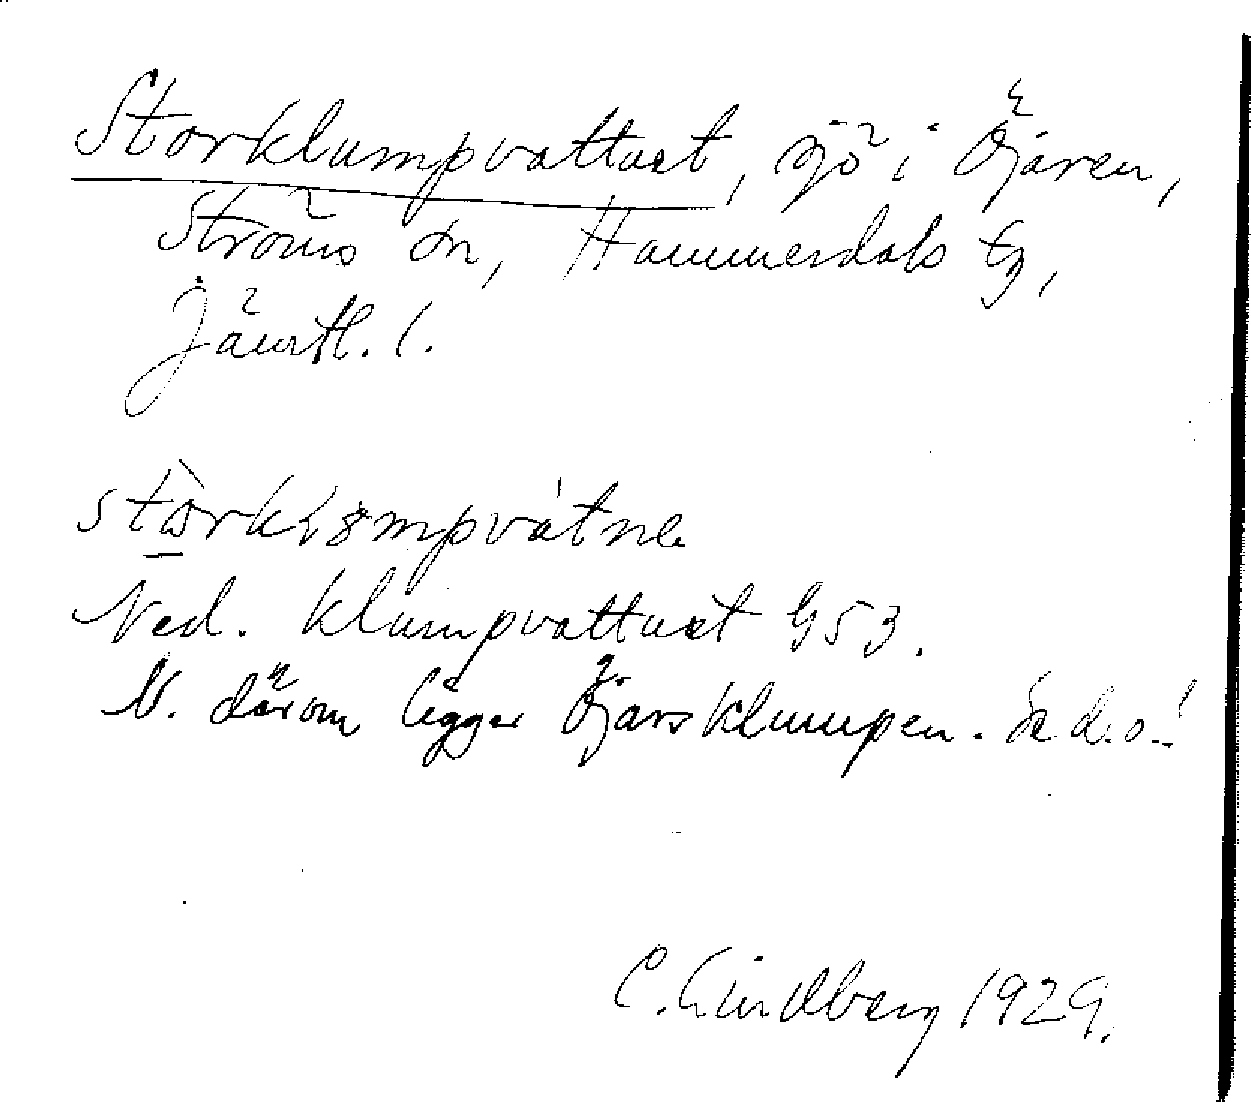 Storklumpvattnet, sjö i Öjaren,
Ströms sn, Hammerdals tg,
Jämtl. l.
Ned. Klumpvattnet G53.
N. därom ligger Öjarsklumpen. Se d.o.!
C. Lindberg 1929.